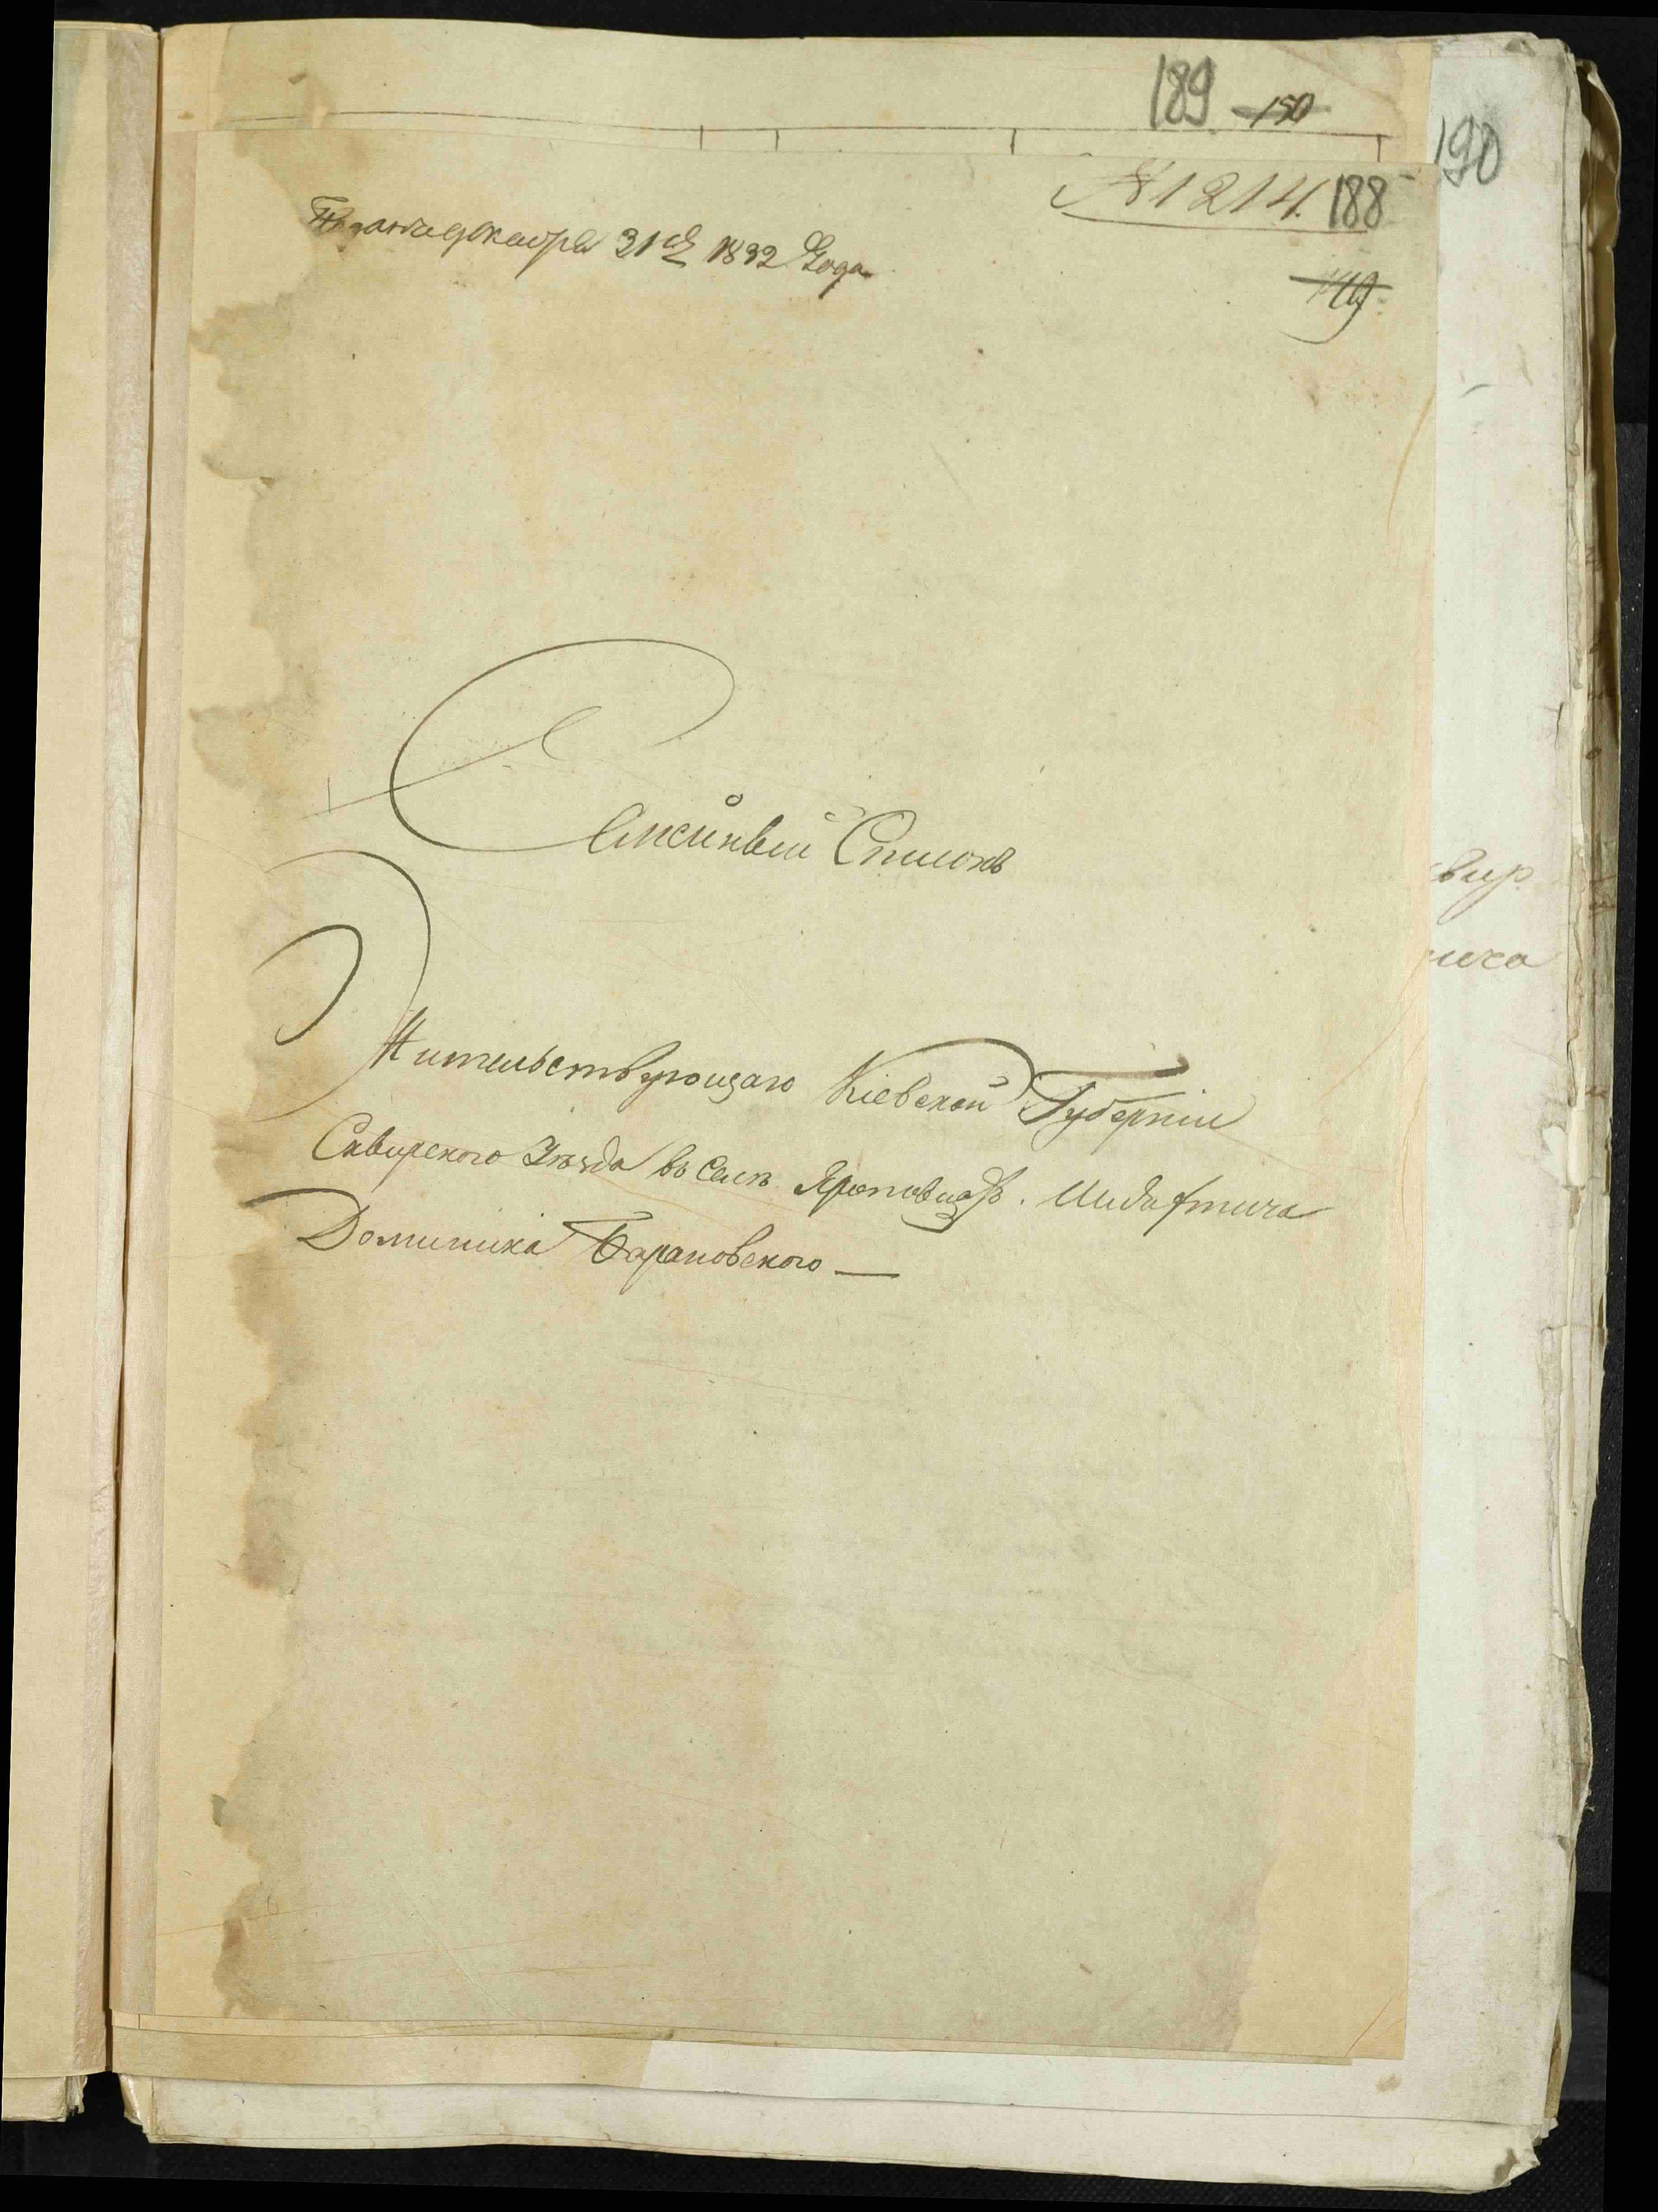 189 150
190
№ 1214. 188
Подана декабря 31го 1832 Года
149
Семейный Списокъ
вир
ича
Жительствующаго Кіевской Губерніи
Сквирского Уезда въ Селѣ Яроповцахъ. Шляхтича
Доминика Барановского —